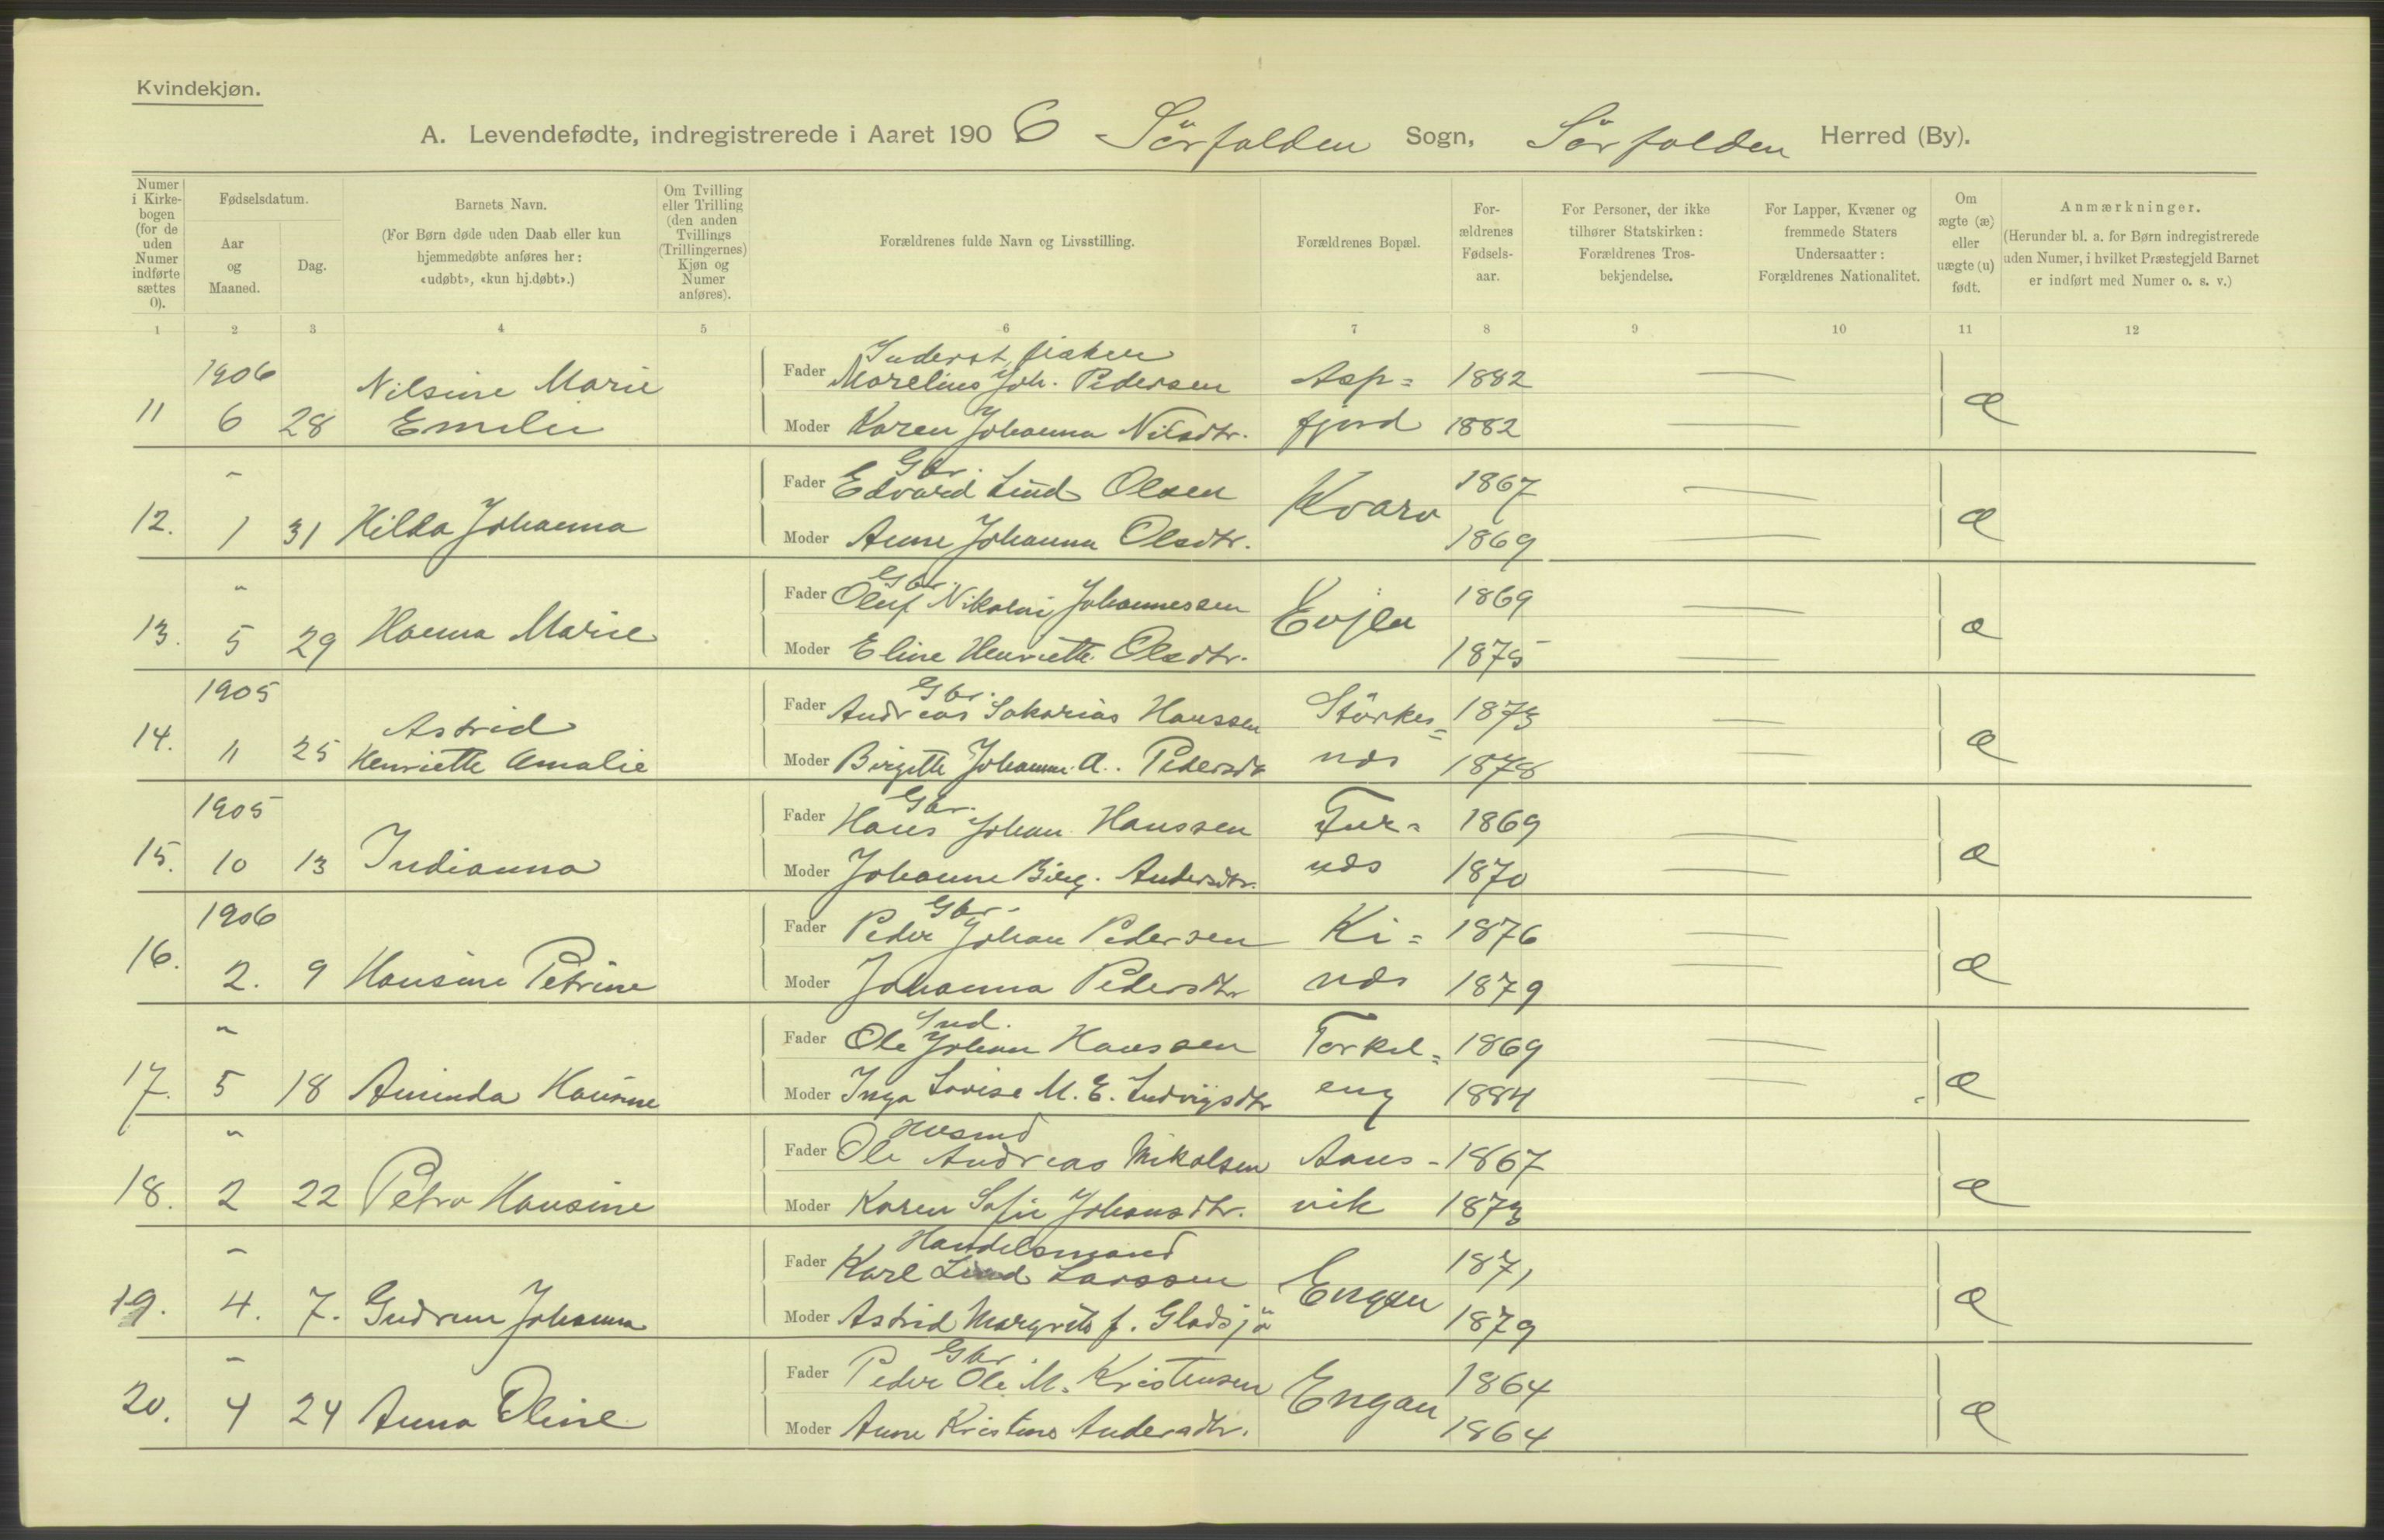 Kvindekjøn.
A. Levendefødte, indregistrerede i Aaret 1906 Sörfolden Sogn, Sörfolden Herred (By).
Numer i Kirkebogen (for de uden Numer indførte sættes 0).
Fødselsdatum.
Aar og Maaned.
Dag.
Barnets Navn.
(For Børn døde uden Daab eller kun hjemmedøbte anføres her: «udøbt», «kun hj.døbt».)
Om Tvilling eller Trilling (den anden Tvillings (Trillingernes) Kjøn og Numer anføres).
Forældrenes fulde Navn og Livsstilling.
Forældrenes Bopæl.
Forældrenes Fødselsaar.
For Personer, der ikke tilhører Statskirken: Forældrenes Trosbekjendelse.
For Lapper, Kvæner og fremmede Staters Undersaatter: Forældrenes Nationalitet.
Om ægte (æ) eller uægte (u) født.
Anmærkninger.
(Herunder bl. a. for Børn indregistrerede uden Numer, i hvilket Præstegjeld Barnet er indført med Numer o. s. v.)
1 2 3 4 5 6 7 8 9 10 11 12
Inderst, fisker
1906 Nilsine Marie Fader Morelius Joh. Pedersen Asp= 1882
11 6 28 Emelie Moder Karen Johanna Nilsdtr. fjord 1882 æ
Gbr.
" Fader Edvard Lind Olsen Kvarv 1867
12. 1 31 Hilda Johanna Moder Anne Johanna Olsdtr. 1869 æ
Gbr.
" Fader Oluf Nikolai Johannessen Evjen 1869
13. 5 29 Hanna Marie Moder Eline Henriette Olsdtr. 1875 æ
Gbr.
1905 Astrid Fader Andreas Sakarias Hanssen Störkes= 1873
14. 11 25 Henriette Amalie Moder Birgitte Johanne A. Pedersdt nds 1878 æ
Gbr.
1905 Fader Hans Johan Hanssen Fur= 1869
15. 10 13 Indianna Moder Johanne Birg. Andersdtr. nds 1870 æ
Gbr.
1906 Fader Peder Johan Pedersen Ki= 1876
16. 2. 9 Hansine Petrine Moder Johanna Pedersdtr nds 1879 æ
Ind.
" Fader Ole Johan Hanssen Torkel= 1869
17. 5 18 Aminda Hansine Moder Inga Lovise M. E. Ludvigsdtr eng 1884 æ
Husmd
" Fader Ole Andreas Nikolsen Aans- 1867
18. 2 22 Petra Hansine Moder Karen Sofie Johansdtr. vik 1873 æ
Handelsmand
" Fader Karl Lind Larssen Engan 1871
19. 4. 7. Gudrun Johanna Moder Astrid Margrete f. Gladsjö 1879 æ
Gbr.
" Fader Peder Ole M. Kristensen Engan 1864
20. 4 24 Anna Oline Moder Anne Kristine Andersdtr. 1864 æ